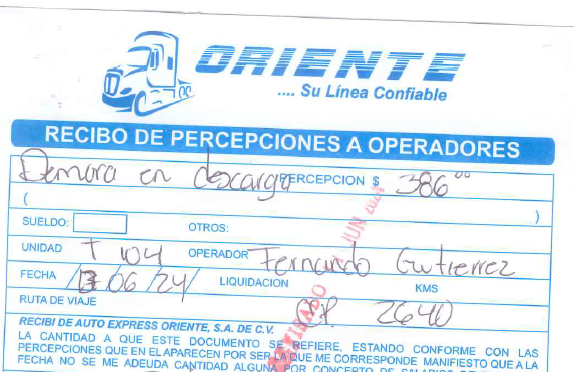 ORIENTE
.... Su Línea Confiable
RECIBO DE PERCEPCIONES A OPERADORES
Demora en descarga PERCEPCION $ 386⁰⁰
( )
SUELDO: OTROS:
UNIDAD T 104 OPERADOR Fernando Gutierrez
FECHA /06/24/ LIQUIDACION KMS
RUTA DE VIAJE CP. 2640
RECIBI DE AUTO EXPRESS ORIENTE, S.A. DE C.V.
LA CANTIDAD A QUE ESTE DOCUMENTO SE REFIERE, ESTANDO CONFORME CON LAS
PERCEPCIONES QUE EN EL APARECEN POR SER LA QUE ME CORRESPONDE MANIFIESTO QUE A LA
FECHA NO SE ME ADEUDA CANTIDAD ALGUNA POR CONCEPTO DE SALARIOS
JUN 2024